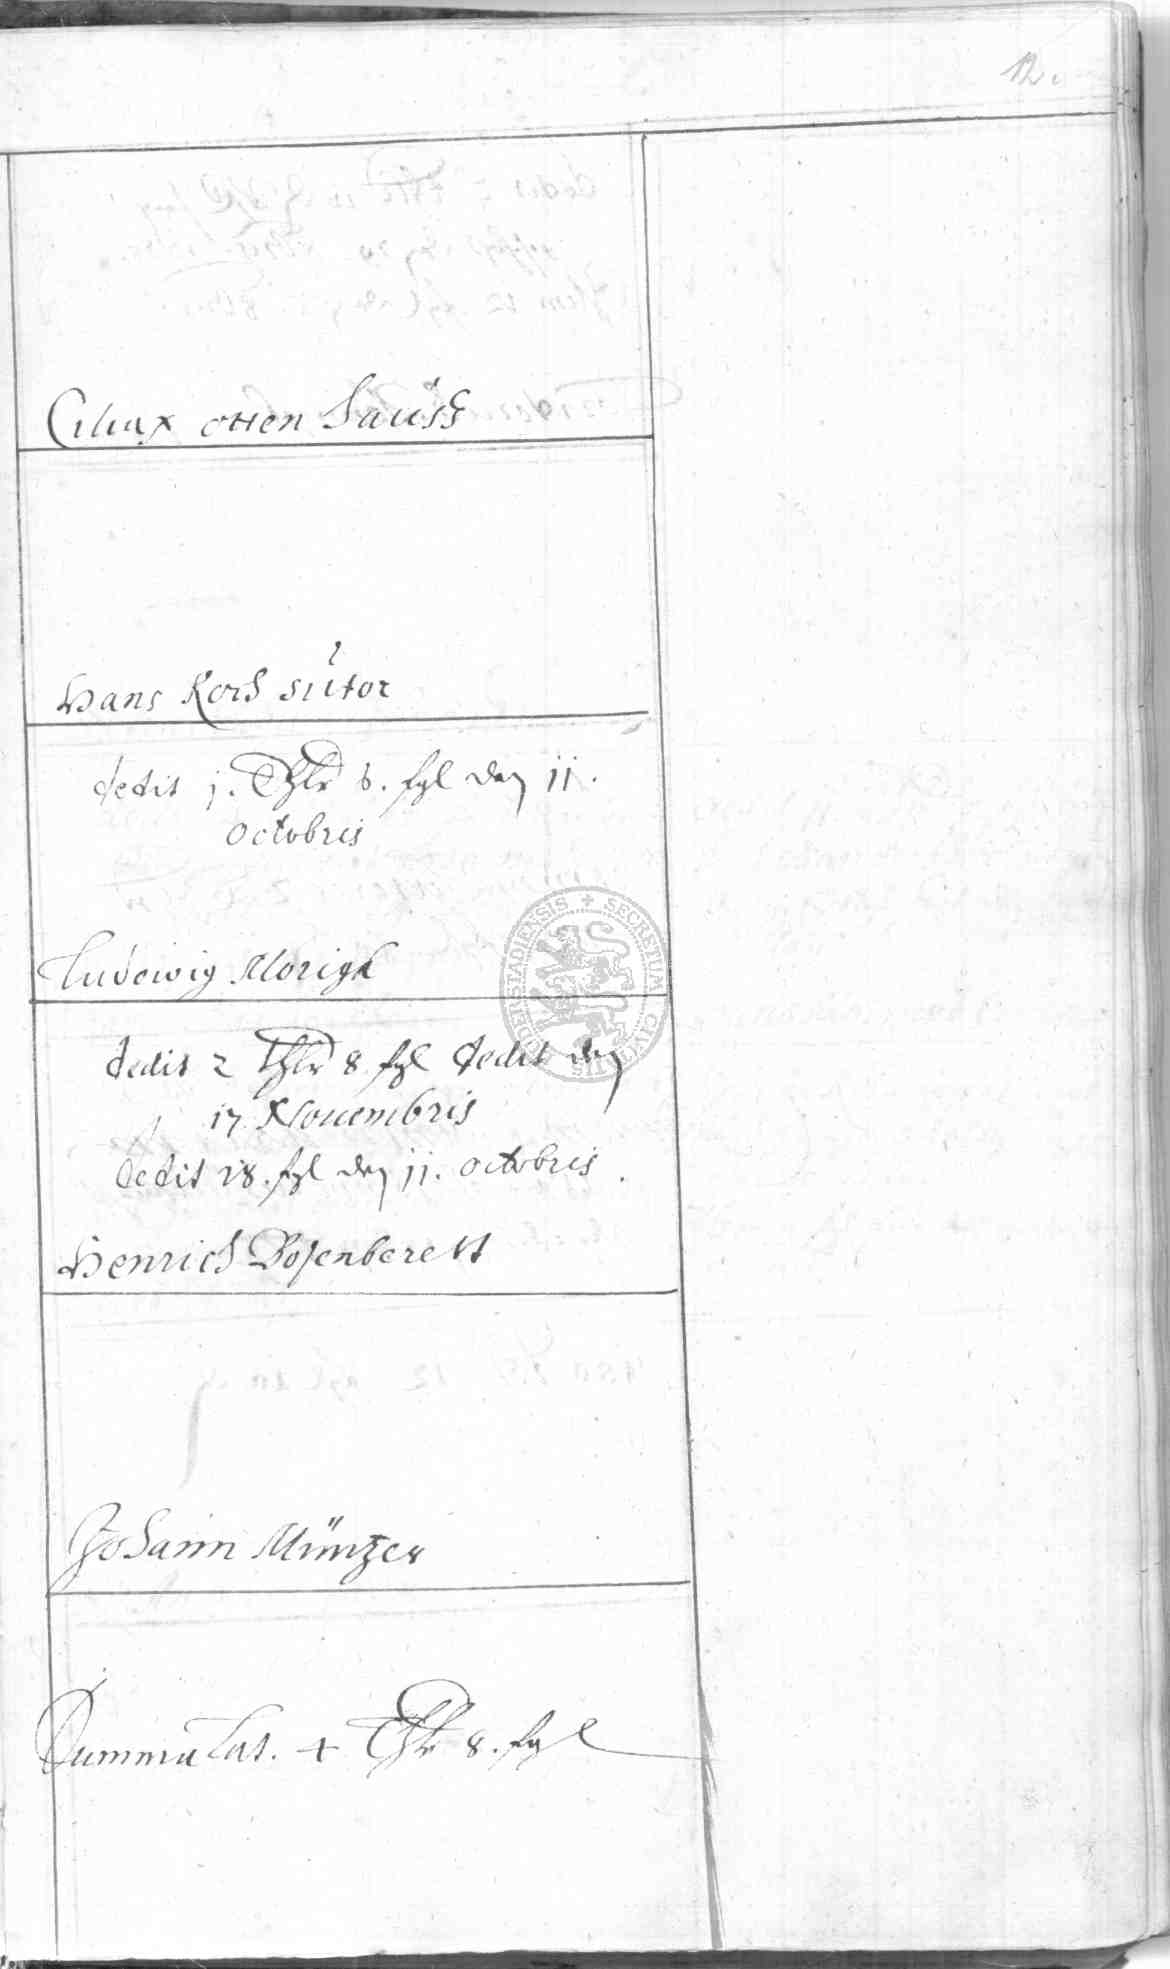 12.
Ciliax otten Hauß
Hans Koch sutor
dedit j. Thlr 8. sgl den 11.
octobris
Ludewig Morigk
dedit 2 Thlr 8 sgl dedit den
17 Nouembris
dedit 18. sgl den 11. octobris.
Henrich Bosenberett
Johann Müntzer
Summa Lat. 4 Thlr 8. sgl
SECRETUM CIVITATIS DUDERSTADIENSIS